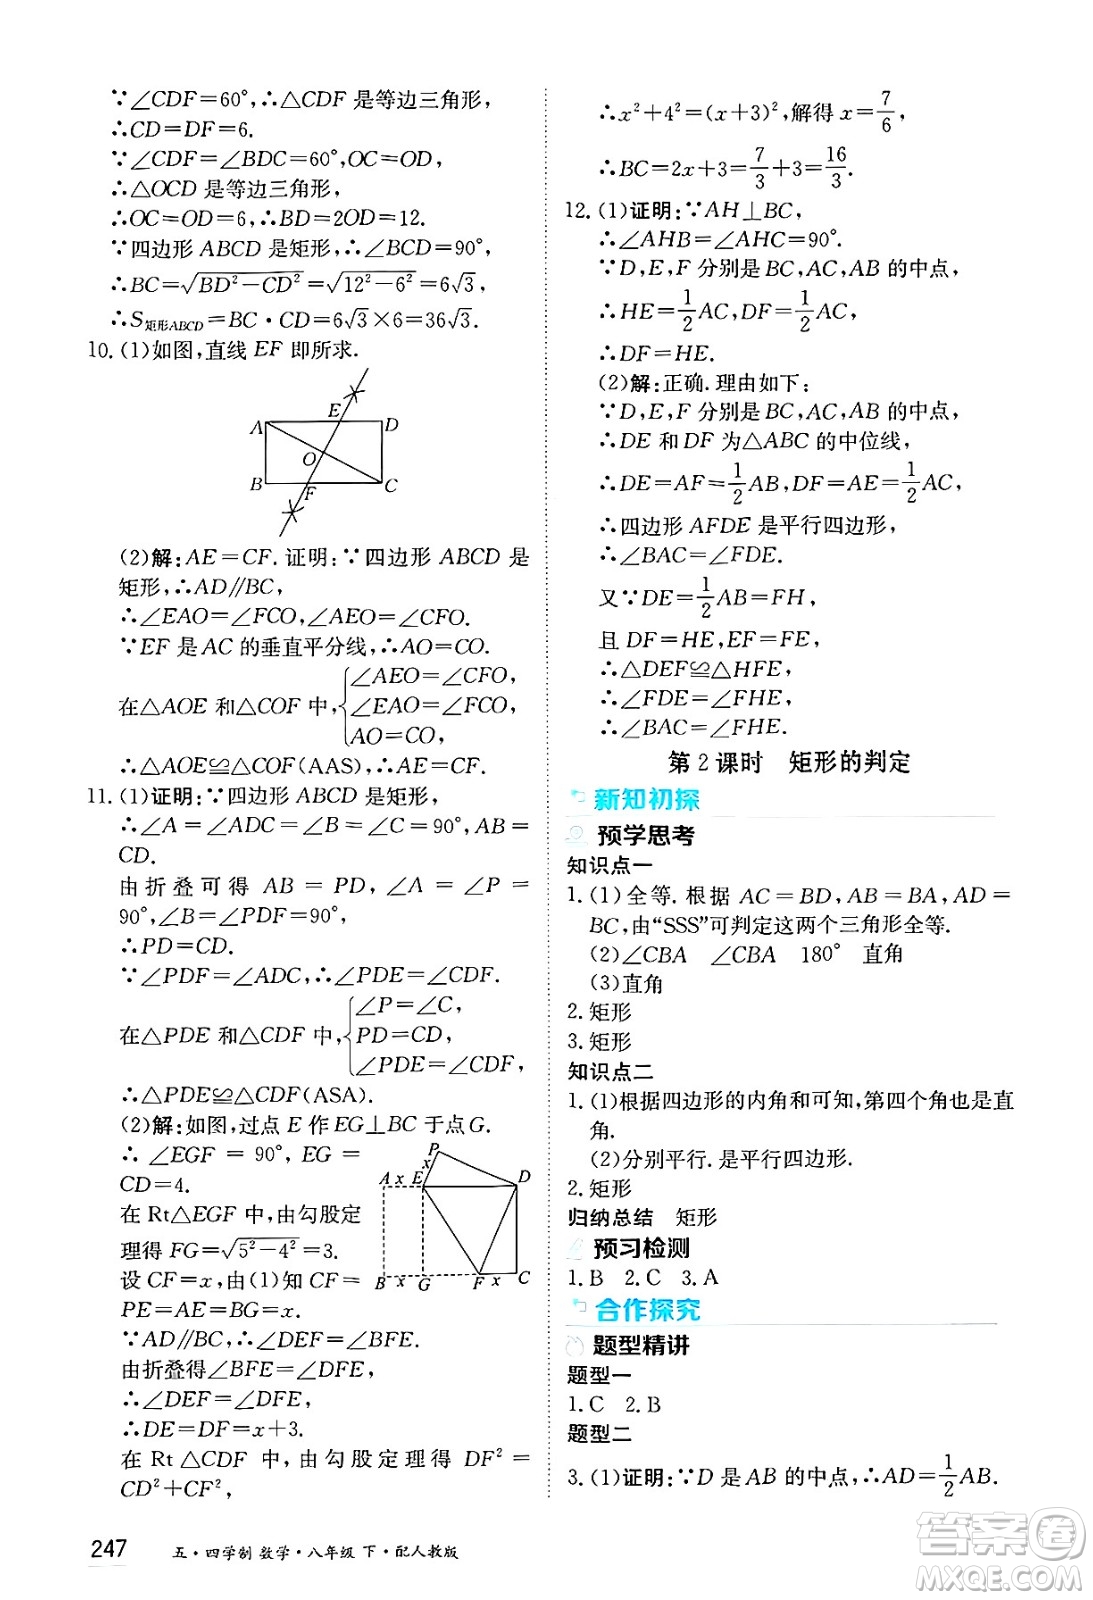 ∵∠CDF=60°,∴△CDF 是等边三角形,
∴CD=DF=6.
∵∠CDF=∠BDC=60°,OC=OD,
∴△OCD 是等边三角形,
∴OC=OD=6,∴BD=2OD=12.
∵四边形 ABCD 是矩形,∴∠BCD=90°,
∴BC=√(BD²-CD²)=√(12²-6²)=6√3,
∴S矩形ABCD=BC·CD=6√3×6=36√3.
10.(1)如图,直线 EF 即所求.
E
A
D
O
B
F
C
(2)解:AE=CF.证明:∵四边形 ABCD 是
矩形,∴AD∥BC,
∴∠EAO=∠FCO,∠AEO=∠CFO.
∵EF 是 AC 的垂直平分线,∴AO=CO.
在△AOE 和△COF 中,{∠AEO=∠CFO,
∠EAO=∠FCO,
AO=CO.
∴△AOE≌△COF(AAS),∴AE=CF.
11.(1)证明:∵四边形 ABCD 是矩形,
∴∠A=∠ADC=∠B=∠C=90°,AB=
CD.
由折叠可得 AB=PD,∠A=∠P=
90°,∠B=∠PDF=90°,
∴PD=CD.
∵∠PDF=∠ADC,∴∠PDE=∠CDF.
在△PDE 和△CDF 中,{∠P=∠C,
PD=CD,
∠PDE=∠CDF,
∴△PDE≌△CDF(ASA).
(2)解:如图,过点 E 作 EG⊥BC 于点G.
∴∠EGF=90°,EG=
CD=4.
在 Rt△EGF 中,由勾股定
理得 FG=√(5²-4²)=3.
设 CF=x,由(1)知 CF=
PE=AE=BG=x.
P
x
A x E
D
B x G
F x C
∵AD∥BC,∴∠DEF=∠BFE.
由折叠得∠BFE=∠DFE,
∴∠DEF=∠DFE,
∴DE=DF=x+3.
在 Rt △CDF 中,由勾股定理得 DF²=
CD²+CF²,
∴x²+4²=(x+3)²,解得 x=7/6,
∴BC=2x+3=7/3+3=16/3.
12.(1)证明:∵AH⊥BC,
∴∠AHB=∠AHC=90°.
∵D,E,F 分别是 BC,AC,AB 的中点,
∴HE=1/2AC,DF=1/2AC,
∴DF=HE.
(2)解:正确.理由如下:
∵D,E,F 分别是 BC,AC,AB 的中点,
∴DE 和 DF 为△ABC 的中位线,
∴DE=AF=1/2AB,DF=AE=1/2AC,
∴四边形 AFDE 是平行四边形,
∴∠BAC=∠FDE.
又∵DE=1/2AB=FH,
且 DF=HE,EF=FE,
∴△DEF≌△HFE,
∴∠FDE=∠FHE,
∴∠BAC=∠FHE.
第2课时 矩形的判定
新知初探
预学思考
知识点一
1.(1)全等.根据 AC=BD,AB=BA,AD=
BC,由“SSS”可判定这两个三角形全等.
(2)∠CBA ∠CBA 180° 直角
(3)直角
2.矩形
3.矩形
知识点二
1.(1)根据四边形的内角和可知,第四个角也是直
角.
(2)分别平行.是平行四边形.
2.矩形
归纳总结 矩形
预习检测
1.B 2.C 3.A
合作探究
题型精讲
题型一
1.C 2.B
题型二
3.(1)证明:∵D 是 AB 的中点,∴AD=1/2AB.
247 五·四学制 数学·八年级 下·配人教版
答案圈
MXQE.COM